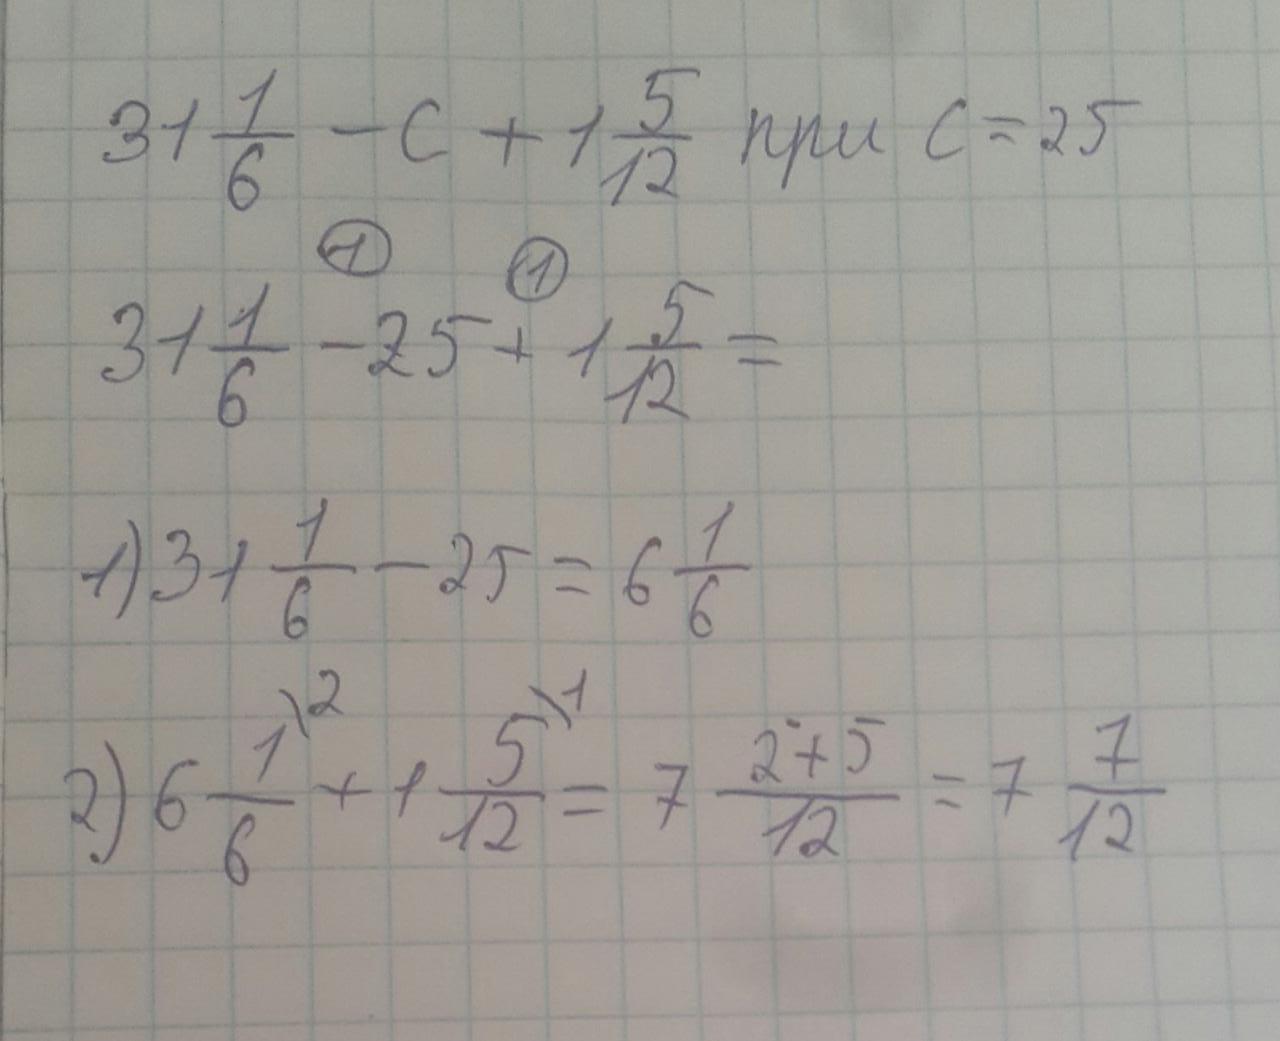 31 1/6 - c + 1 5/12 при c = 25
① ①
31 1/6 - 25 + 1 5/12 =
1) 31 1/6 - 25 = 6 1/6
2) 6 1/6 \2 + 1 5/12 \1 = 7 2+5/12 = 7 7/12